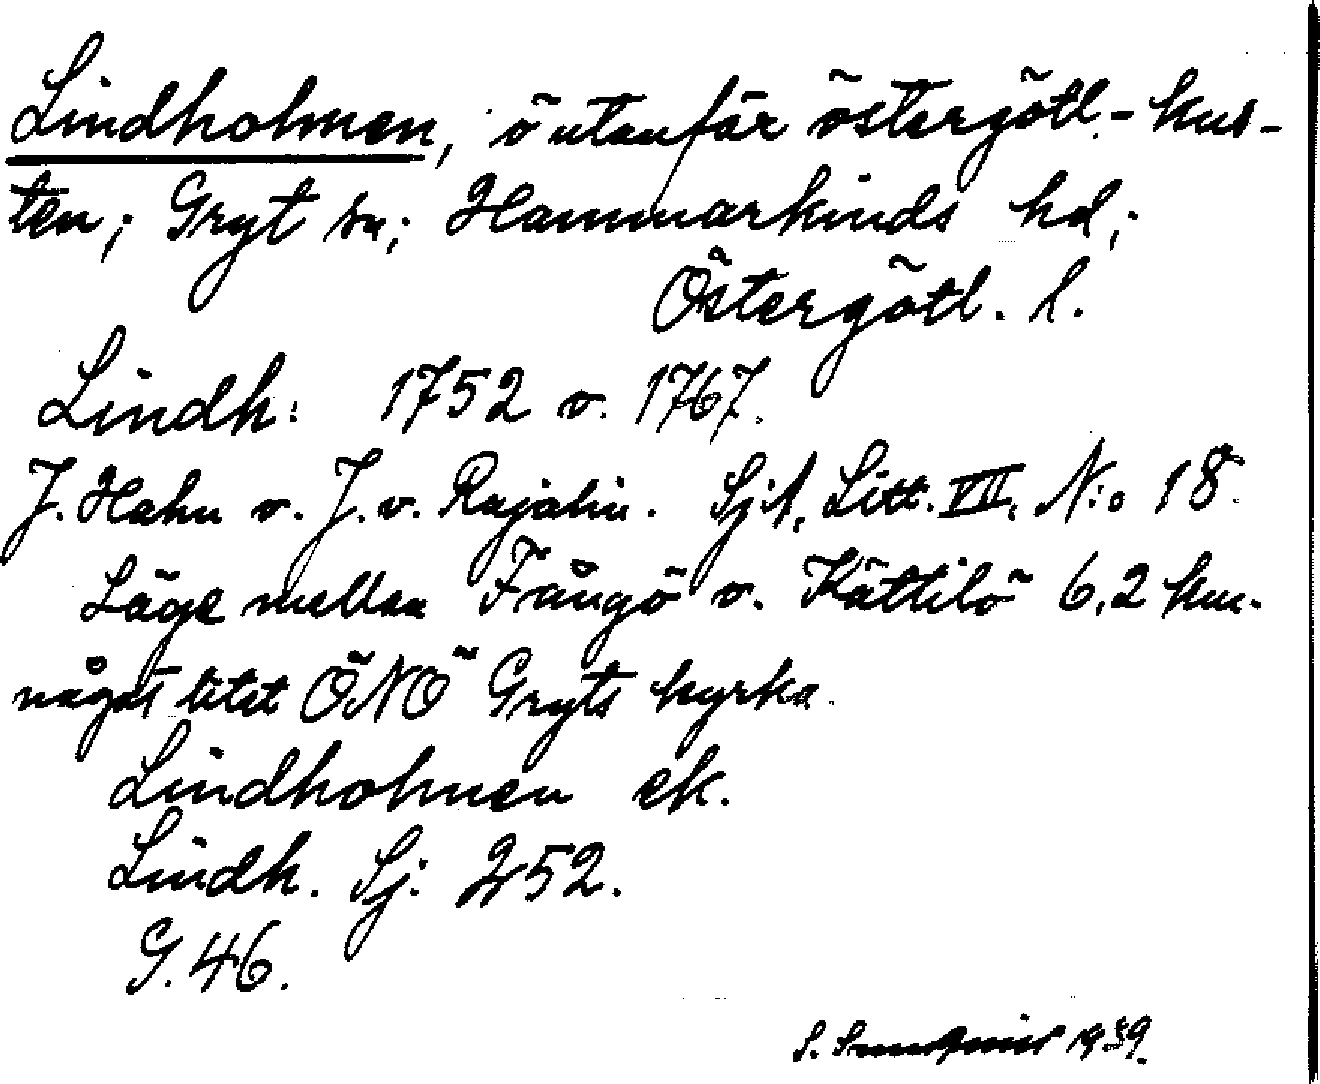 Lindholmen, ö utanför östergötl.- kus-
ten; Gryt sn; Hammarkinds hd;
Östergötl. l.
Lindh: 1752 o. 1767.
J. Hahn o. J. v. Rajalin. SjA, Litt. VII, N:o 18.
Läge mellan Fångö o. Kättilö 6,2 km.
något litet ÖNÖ Gryts kyrka.
Lindholmen ek.
Lindh. Sj: 252.
G. 46.
S. 1939.